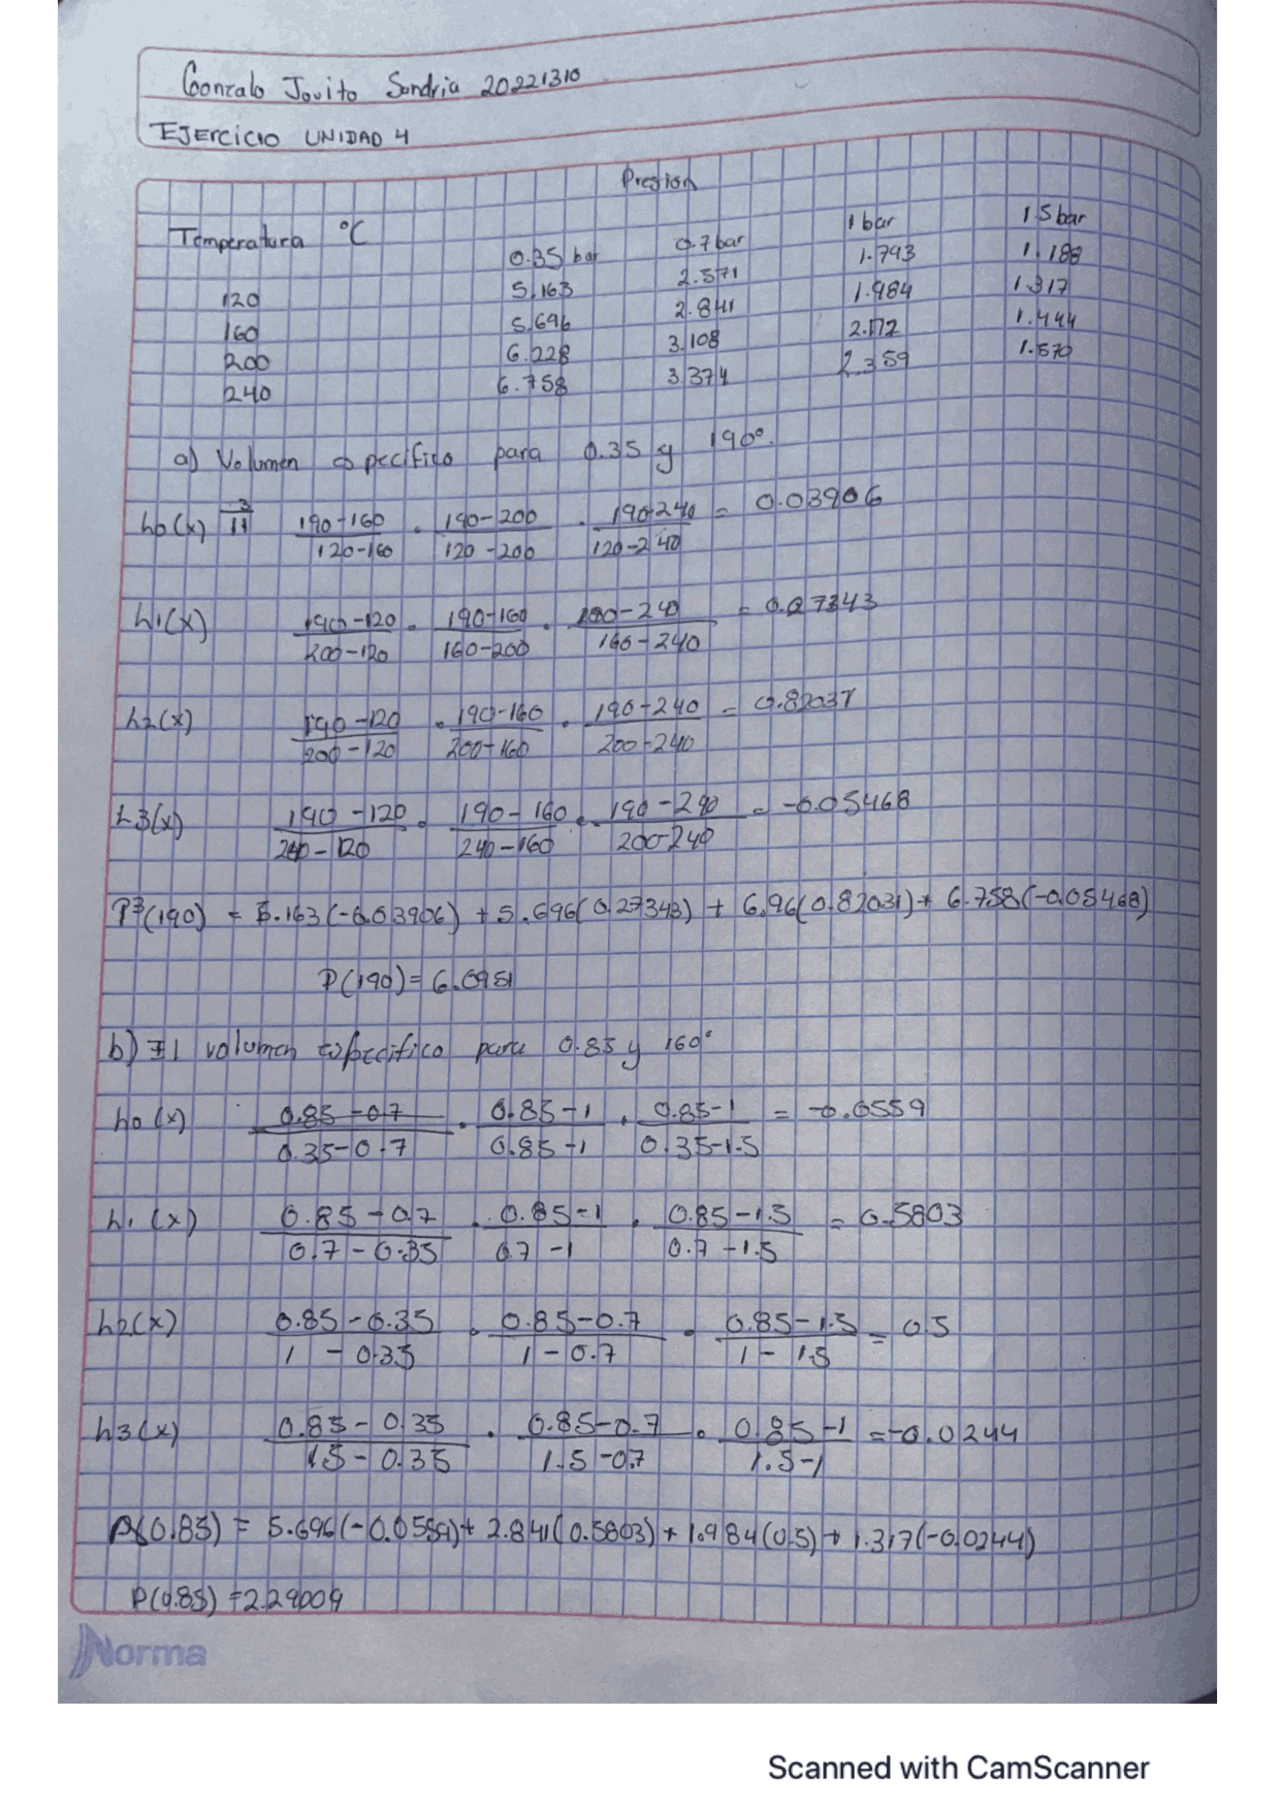 Gonzalo Jovito Sandria 20221310
EJERCICIO UNIDAD 4
Presion
Temperatura °C 0.35 bar 0.7 bar 1 bar 1.5 bar
120 5.163 2.571 1.793 1.188
160 5.696 2.841 1.984 1.317
200 6.228 3.108 2.172 1.444
240 6.758 3.374 2.359 1.570
a) Volumen especifico para 0.35 y 190°.
h0(x) 3/11 190-160/120-160 · 190-200/120-200 · 190-240/120-240 = 0.03906
h1(x) 190-120/200-120 · 190-160/160-200 · 190-240/160-240 = 0.27343
h2(x) 190-120/200-120 · 190-160/200-160 · 190-240/200-240 = 0.82031
h3(x) 190-120/240-120 · 190-160/240-160 · 190-240/200-240 = -0.05468
P3(190) = 5.163(-0.03906) + 5.696(0.27343) + 6.96(0.82031) + 6.758(-0.05468)
P(190) = 6.0951
b) El volumen especifico para 0.85 y 160°
h0(x) 0.85-0.7/0.35-0.7 · 0.85-1/0.85-1 · 0.85-1/0.35-1.5 = -0.0559
h1(x) 0.85-0.7/0.7-0.35 · 0.85-1/0.7-1 · 0.85-1.5/0.7-1.5 = 0.5803
h2(x) 0.85-0.35/1-0.35 · 0.85-0.7/1-0.7 · 0.85-1.5/1-1.5 = 0.5
h3(x) 0.85-0.35/1.5-0.35 · 0.85-0.7/1.5-0.7 · 0.85-1/1.5-1 = -0.0244
P(0.85) = 5.696(-0.0559) + 2.841(0.5803) + 1.984(0.5) + 1.317(-0.0244)
P(0.85) = 2.29009
Norma
Scanned with CamScanner